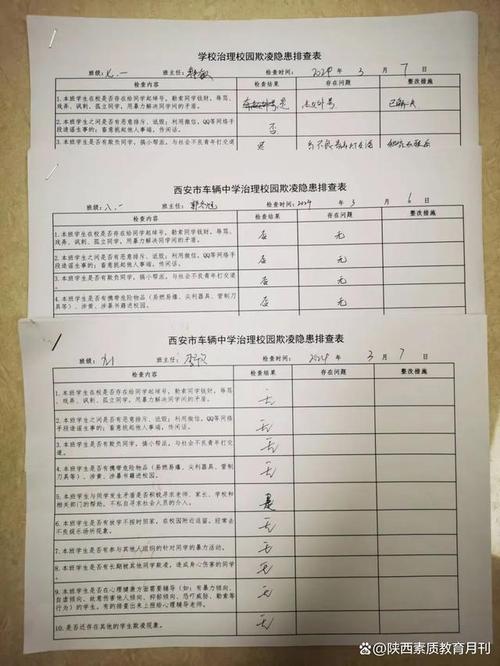 学校治理校园欺凌隐患排查表
班级: 班主任: 检查时间: 2024 年 3 月 7 日
检查内容 检查结果 存在问题 整改措施
1.本班学生在校是否存在给同学起绰号、勒索同学钱财、辱骂、
戏弄、讽刺、孤立同学、用暴力解决同学间的矛盾。
2.本班学生之间是否有恶意排斥、诋毁;利用微信、QQ等网络手
段造谣生事的;蓄意挑起他人事端,传闲话。 否
3.本班学生是否有欺负同学,搞小帮派,与社会不良青年打交道
西安市车辆中学治理校园欺凌隐患排查表
班级: 八.一 班主任: 检查时间: 2024 年 3 月 6 日
检查内容 检查结果 存在问题 整改措施
1.本班学生在校是否存在给同学起绰号、勒索同学钱财、辱骂、 否 无
戏弄、讽刺、孤立同学、用暴力解决同学间的矛盾。
2.本班学生之间是否有恶意排斥、诋毁;利用微信、QQ等网络 否 无
手段造谣生事的;蓄意挑起他人事端,传闲话。
3.本班学生是否有欺负同学,搞小帮派,与社会不良青年打交道。 否 无
4.本班学生是否有携带危险物品(易燃易爆、尖利器具、管制刀 否 无
具等)、涉黄、涉暴书籍进校园。
西安市车辆中学治理校园欺凌隐患排查表
班级: 班主任: 检查时间: 2024 年 3 月 7 日
检查内容 检查结果 存在问题 整改措施
1.本班学生在校是否存在给同学起绰号、勒索同学钱财、辱骂、 无
戏弄、讽刺、孤立同学、用暴力解决同学间的矛盾。
2.本班学生之间是否有恶意排斥、诋毁;利用微信、QQ等网络 无
手段造谣生事的;蓄意挑起他人事端,传闲话。
3.本班学生是否有欺负同学,搞小帮派,与社会不良青年打交 无
道。
4.本班学生是否有携带危险物品(易燃易爆、尖利器具、管制 无
刀具等)、涉黄、涉暴书籍进校园。
5.本班学生与同学发生矛盾是否积极寻求老师、家长、学校和 是
相关部门的帮助。不私自寻求社会人员的介入。
6.本班学生是否有放学不按时回家,在校园附近逗留,经常去 无
不良娱乐场所现象。
7.本班学生是否有参与其他人组织的针对同学的暴力活动。 无
8.本班学生是否有长期被其他同学欺凌,造成身心伤害的同学 无
9.本班学生是否有在心理健康方面需要辅导(如:有暴力倾向、 无
自虐倾向、故意伤害他人倾向、抑郁倾向、恐吓威胁、勒索等
行为)的学生。有的排查出来上报给心理辅导老师。
10.是否还存在其他的学生欺凌现象。 无
@陕西素质教育月刊